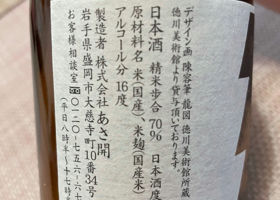 デザイン画 陳容筆 龍図 徳川美術館所蔵
徳川美術館より貸与頂いております。
日本酒 精米歩合 70% 日本酒度
原材料名 米(国産)、米麹(国産米)
アルコール分 16度
製造者 株式会社 あさ開
岩手県盛岡市大慈寺町10番34号
お客様相談室 0120-756-6
(平日八時半~十七時